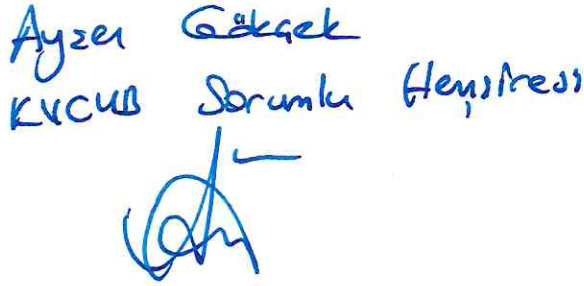 Ayzer Gökçek
KVCYB Sorumlu Hemşiresi